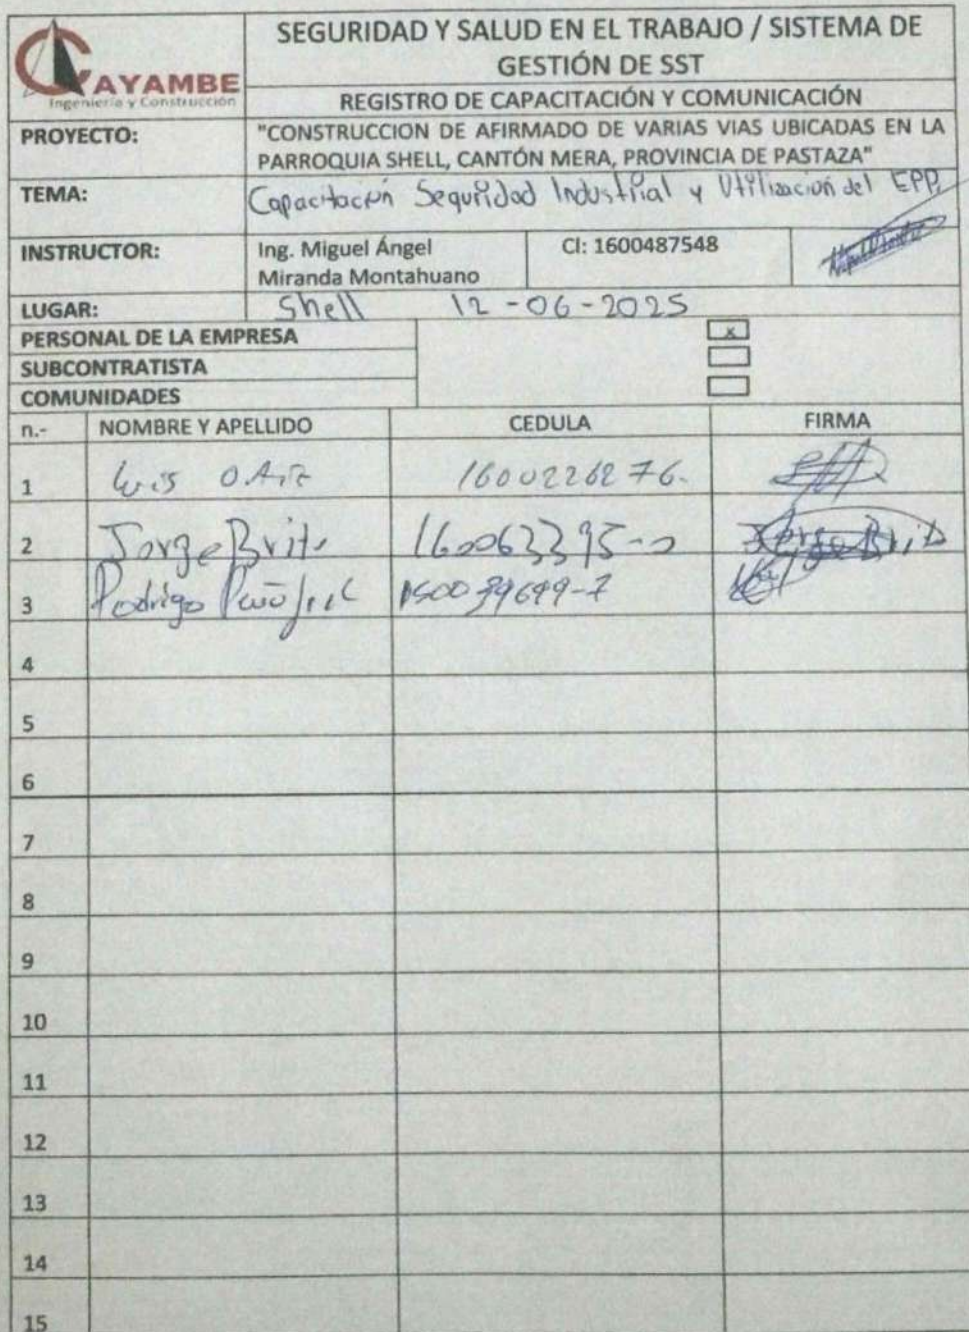 CAYAMBE
Ingeniería y Construcción
SEGURIDAD Y SALUD EN EL TRABAJO / SISTEMA DE
GESTIÓN DE SST
REGISTRO DE CAPACITACIÓN Y COMUNICACIÓN
PROYECTO:
"CONSTRUCCION DE AFIRMADO DE VARIAS VIAS UBICADAS EN LA
PARROQUIA SHELL, CANTÓN MERA, PROVINCIA DE PASTAZA"
TEMA:
Capacitación Seguridad Industrial y Utilización del EPP.
INSTRUCTOR:
Ing. Miguel Ángel
Miranda Montahuano
CI: 1600487548
LUGAR:
Shell 12-06-2025
PERSONAL DE LA EMPRESA x
SUBCONTRATISTA
COMUNIDADES
n.- NOMBRE Y APELLIDO CEDULA FIRMA
1 Luis 1600226276.
2 Jorge Brito 160063395-0 Jorge Brito
3 Rodrigo
4
5
6
7
8
9
10
11
12
13
14
15